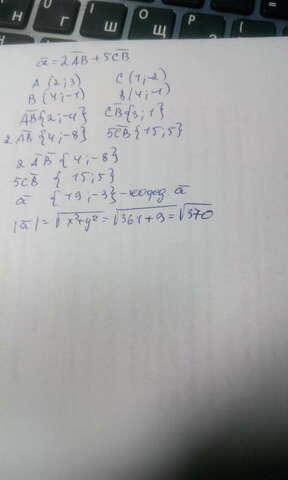 ā = 2AB̅ + 5CB̅
A (2; 3) C (1; -2)
B (4; -1) B (4; -1)
AB̅ {2; -4} CB̅ {3; 1}
2AB̅ {4; -8} 5CB̅ {15; 5}
2AB̅ {4; -8}
5CB̅ {15; 5}
ā {19; -3} - коорд ā
|ā| = √x²+y² = √361+9 = √370